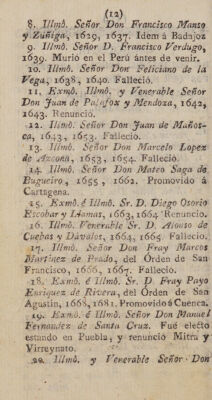 (12)
8. Illmô. Señor Don Francisco Manso
y Zúñiga, 1629, 1637. Idem á Badajoz
9. Illmô. Señor D. Francisco Verdugo,
1639. Murió en el Perú ántes de venir.
10. Illmô. Señor Don Feliciano de la
Vega, 1638, 1640. Falleció.
11. Exmô. Illmô. y Venerable Señor
Don Juan de Palafox y Mendoza, 1642,
1643. Renunció.
12. Illmô. Señor Don Juan de Maños-
ca, 1643, 1653. Falleció.
13. Illmô. Señor Don Marcelo Lopez
de Azcona, 1653, 1654. Falleció.
14. Illmô. Señor Don Mateo Saga de
Bugueiro, 1655, 1662. Promovido á
Cartagena.
15. Exmô. é Illmô. Sr. D. Diego Osorio
Escobar y Llamas, 1663, 1664 Renunció.
16. Illmô. Venerable Sr. D. Alonso de
Cuebas y Dávalos, 1664, 1665. Falleció.
17. Illmô. Señor Don Fray Marcos
Martinez de Prado, del Órden de San
Francisco, 1666, 1667. Falleció.
18. Exmô. é Illmô. Sr. D. Fray Payo
Enriquez de Rivera, del Órden de San
Agustin, 1668, 1681. Promovido á Cuenca.
19. Exmô. é Illmô. Señor Don Manuel
Fernandez de Santa Cruz. Fué electo
estando en Puebla, y renunció Mitra y
Virreynato.
20. Illmô. y Venerable Señor Don